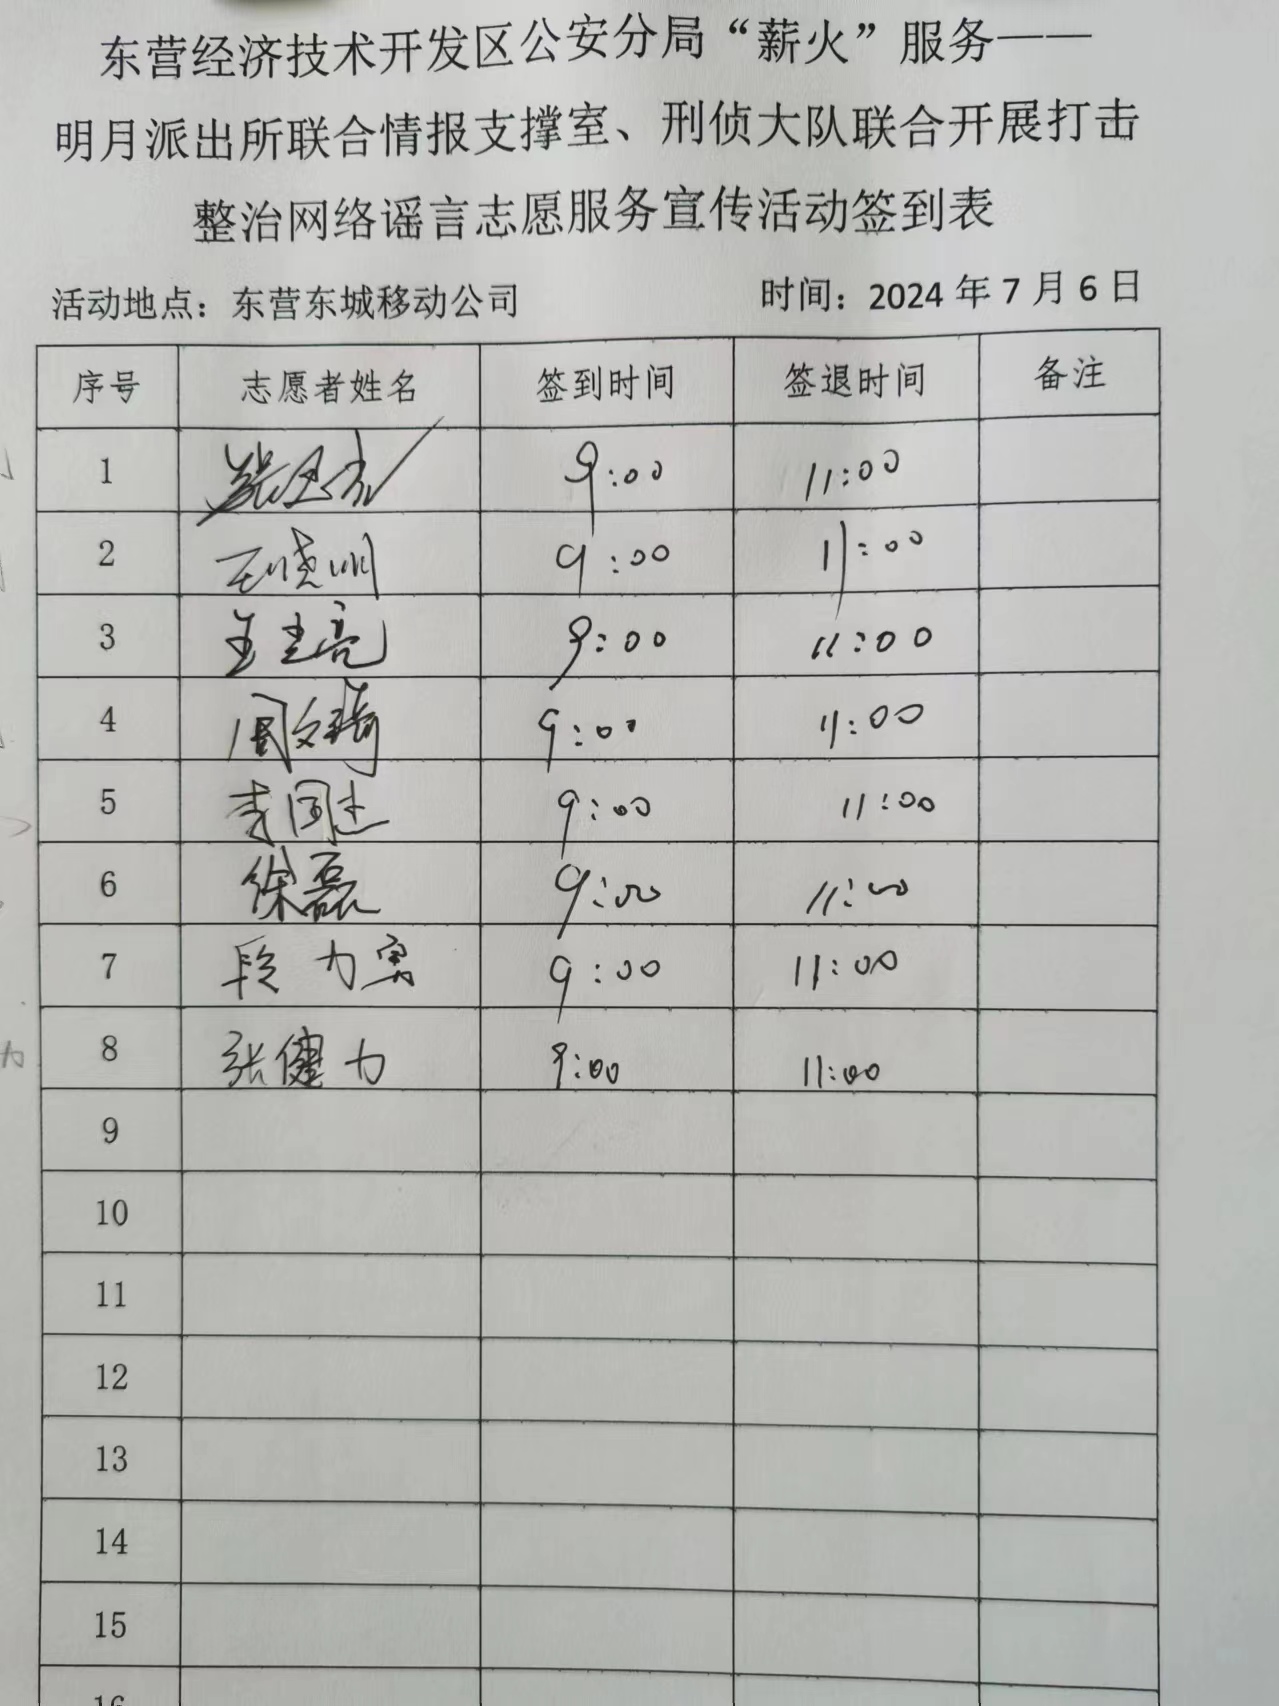 东营经济技术开发区公安分局“薪火”服务——
明月派出所联合情报支撑室、刑侦大队联合开展打击
整治网络谣言志愿服务宣传活动签到表
活动地点：东营东城移动公司 时间：2024 年 7 月 6 日
序号 志愿者姓名 签到时间 签退时间 备注
1 9:00 11:00
2 王晓明 9:00 11:00
3 9:00 11:00
4 周文琦 9:00 11:00
5 李国杰 9:00 11:00
6 徐磊 9:00 11:00
7 段力 9:00 11:00
8 张健力 9:00 11:00
9
10
11
12
13
14
15
16